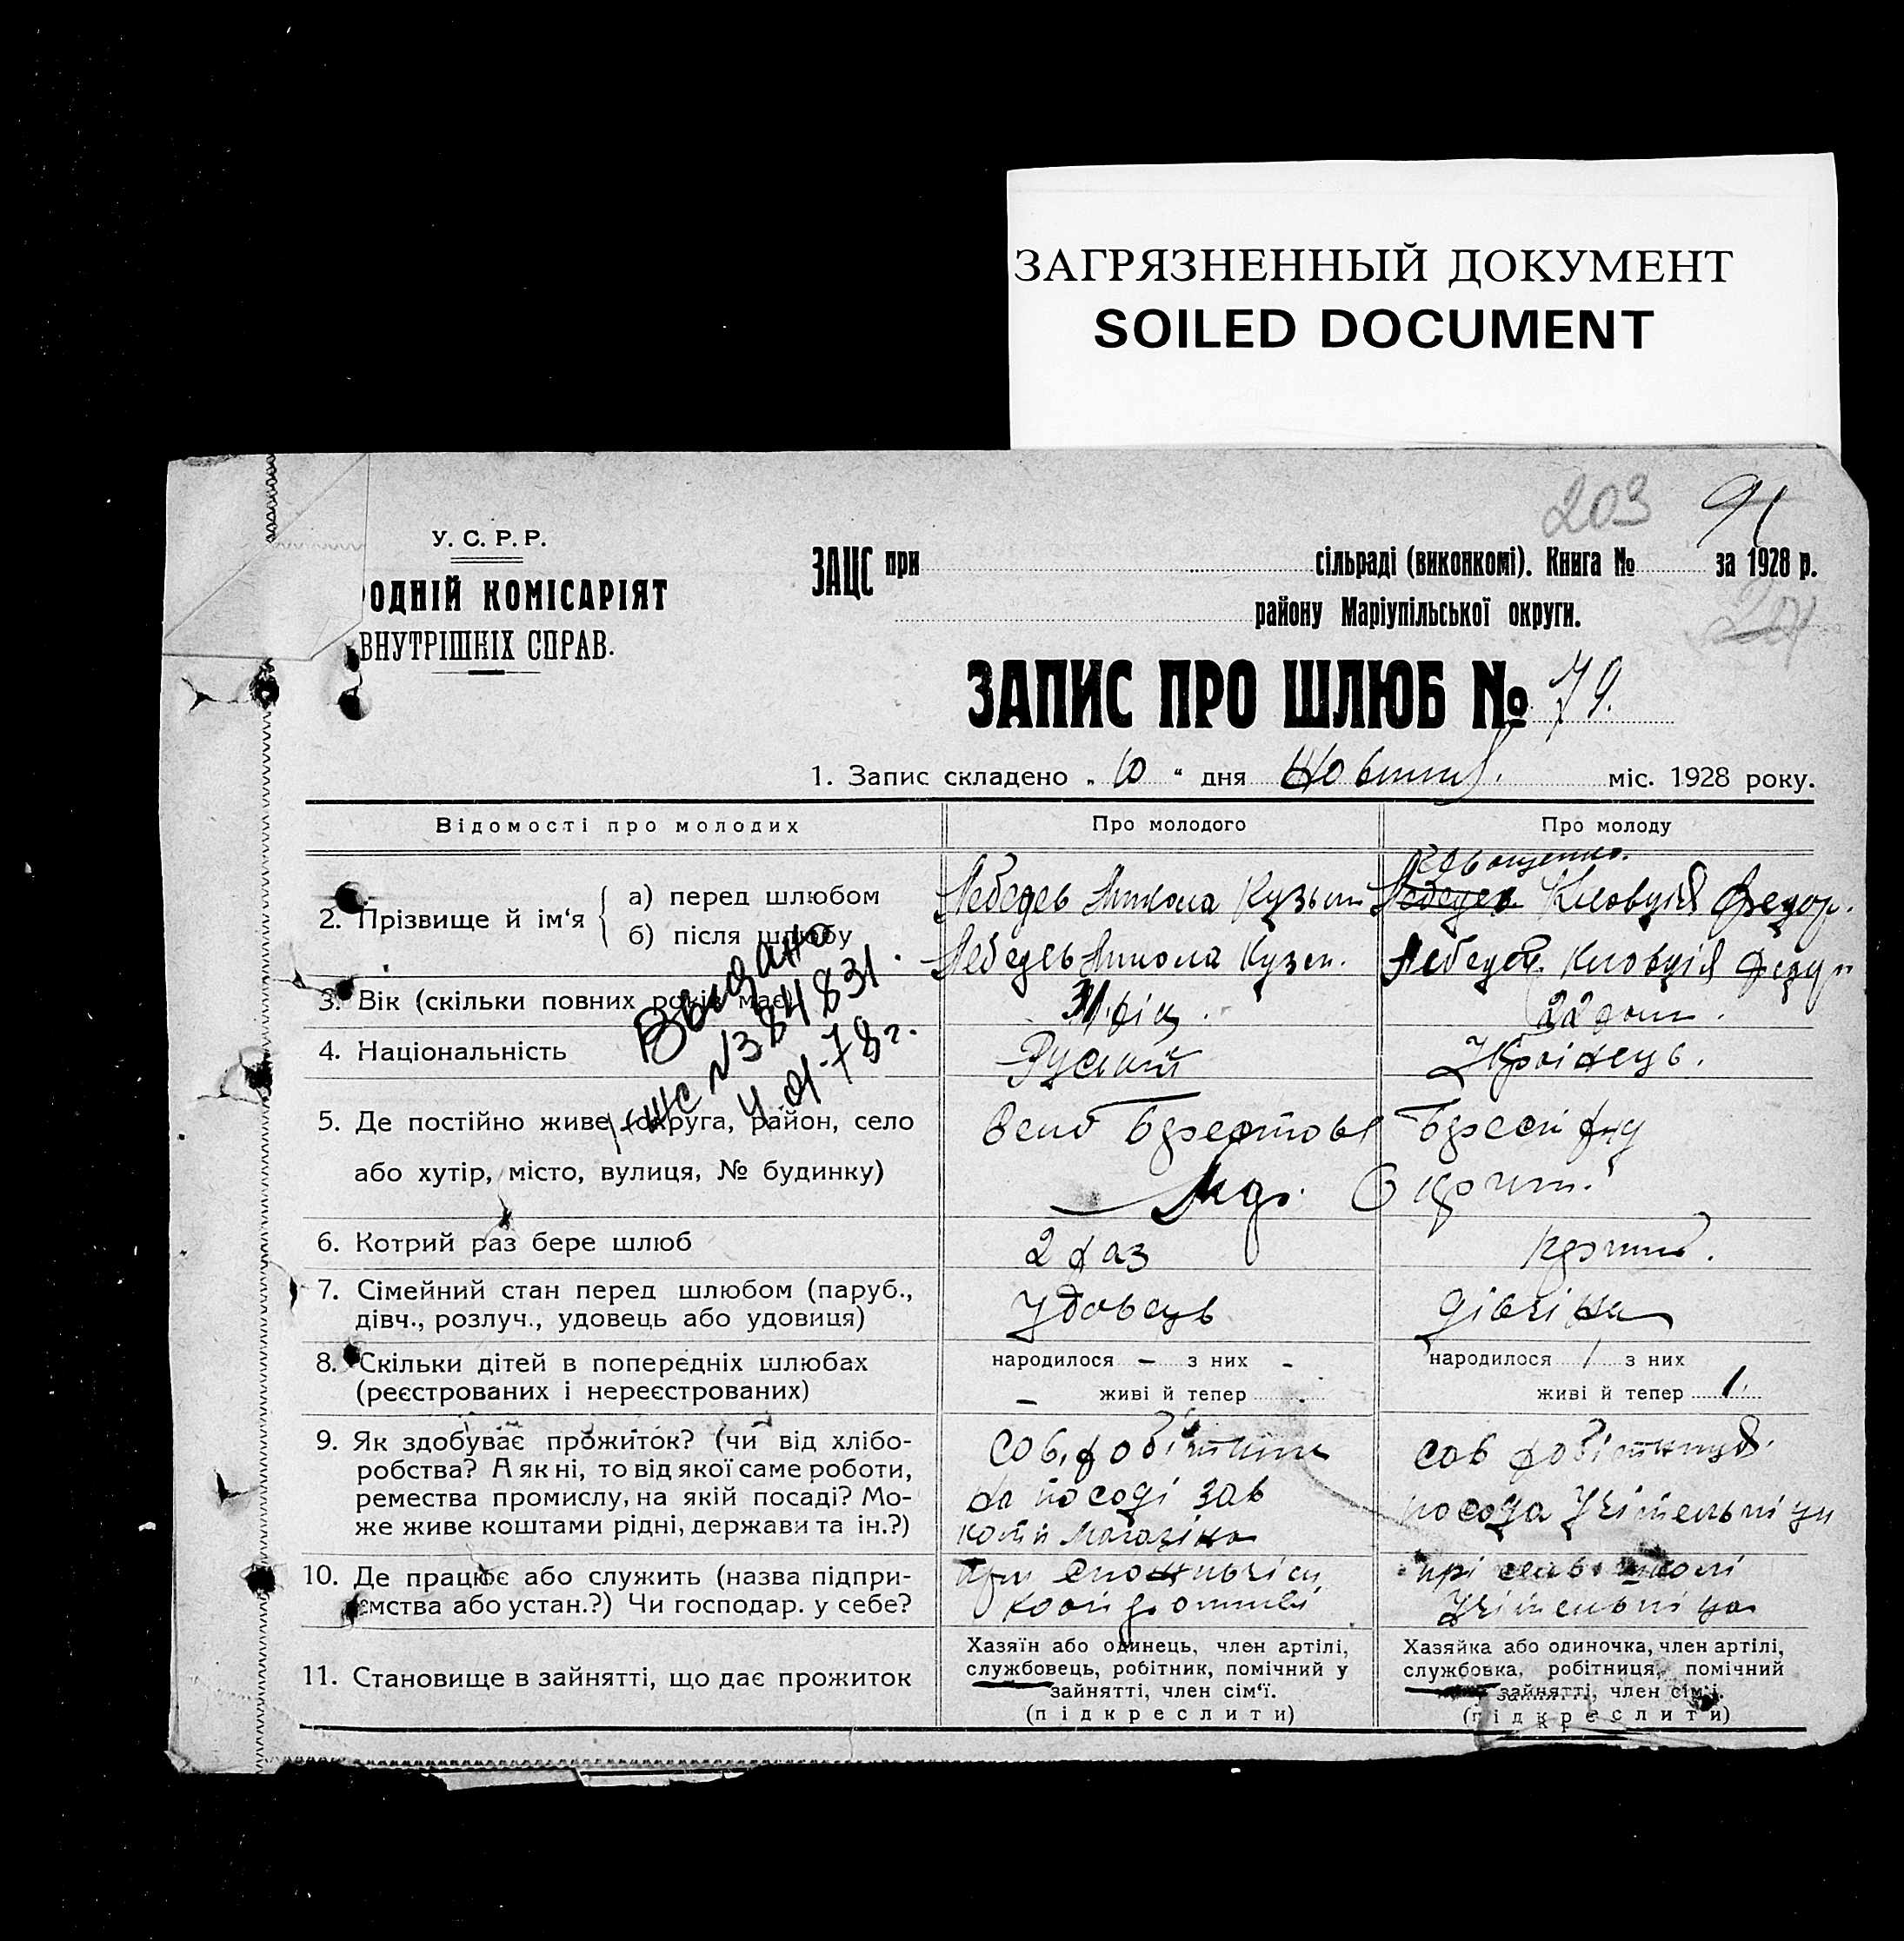 ЗАГРЯЗНЕННЫЙ ДОКУМЕНТ
SOILED DOCUMENT
203 91
У. С. Р. Р.
РОДНІЙ КОМІСАРІЯТ
ВНУТРІШНІХ СПРАВ.
ЗАЦС при сільраді (виконкомі). Книга № за 1928 р.
району Маріупільської округи.
ЗАПИС ПРО ШЛЮБ № 79.
1. Запис складено „ 10 “ дня міс. 1928 року.
Відомості про молодих
Про молодого
Про молоду
2. Прізвище й ім‘я
а) перед шлюбом
Лебедев Микола Кузьм
Лебедев Клавдія Федор.
б) після шлюбу
Лебедев Микола Кузьм.
Лебедев Клавдія Федор
Выдано
№ 384831.
3. Вік (скільки повних років має)
31
22
4. Національність
Руский
Українець.
5. Де постійно живе (округа, район, село
або хутір, місто, вулиця, № будинку)
6. Котрий раз бере шлюб
2 раз
7. Сімейний стан перед шлюбом (паруб.,
дівч., розлуч., удовець або удовиця)
Удовець
дівчіна
8. Скільки дітей в попередніх шлюбах
(реєстрованих і нереєстрованих)
народилося – з них –
– живі й тепер
народилося 1 з них
живі й тепер 1.
9. Як здобуває прожиток? (чи від хлібо-
робства? А як ні, то від якої саме роботи,
ремества промислу, на якій посаді? Мо-
же живе коштами рідні, держави та ін.?)
Сов. робітник
на посаді зав
магазіна
сов робітниця.
посада Учітельниці
10. Де працює або служить (назва підпри-
ємства або устан.?) Чи господар. у себе?
при
прі школі
Учітельніца
11. Становище в зайнятті, що дає прожиток
Хазяїн або одинець, член артілі,
службовець, робітник, помічний у
зайнятті, член сім‘ї.
(підкреслити)
Хазяйка або одиночка, член артілі,
службовка, робітниця, помічний
зайнятті, член сім‘ї.
(підкреслити)